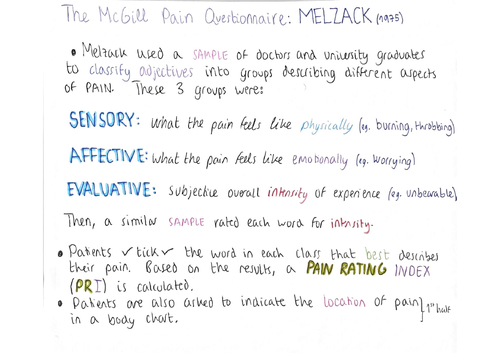 The McGill Pain Questionnaire: MELZACK (1975)
• Melzack used a SAMPLE of doctors and university graduates
to classify adjectives into groups describing different aspects
of PAIN. These 3 groups were:
SENSORY: What the pain feels like physically (eg. burning, throbbing)
AFFECTIVE: What the pain feels like emotionally (eg. worrying)
EVALUATIVE: Subjective overall intensity of experience (eg. unbearable)
Then, a similar SAMPLE rated each word for intensity.
• Patients ✓tick✓ the word in each class that best describes
their pain. Based on the results, a PAIN RATING INDEX
(PRI) is calculated.
• Patients are also asked to indicate the location of pain
in a body chart.
} 1st half